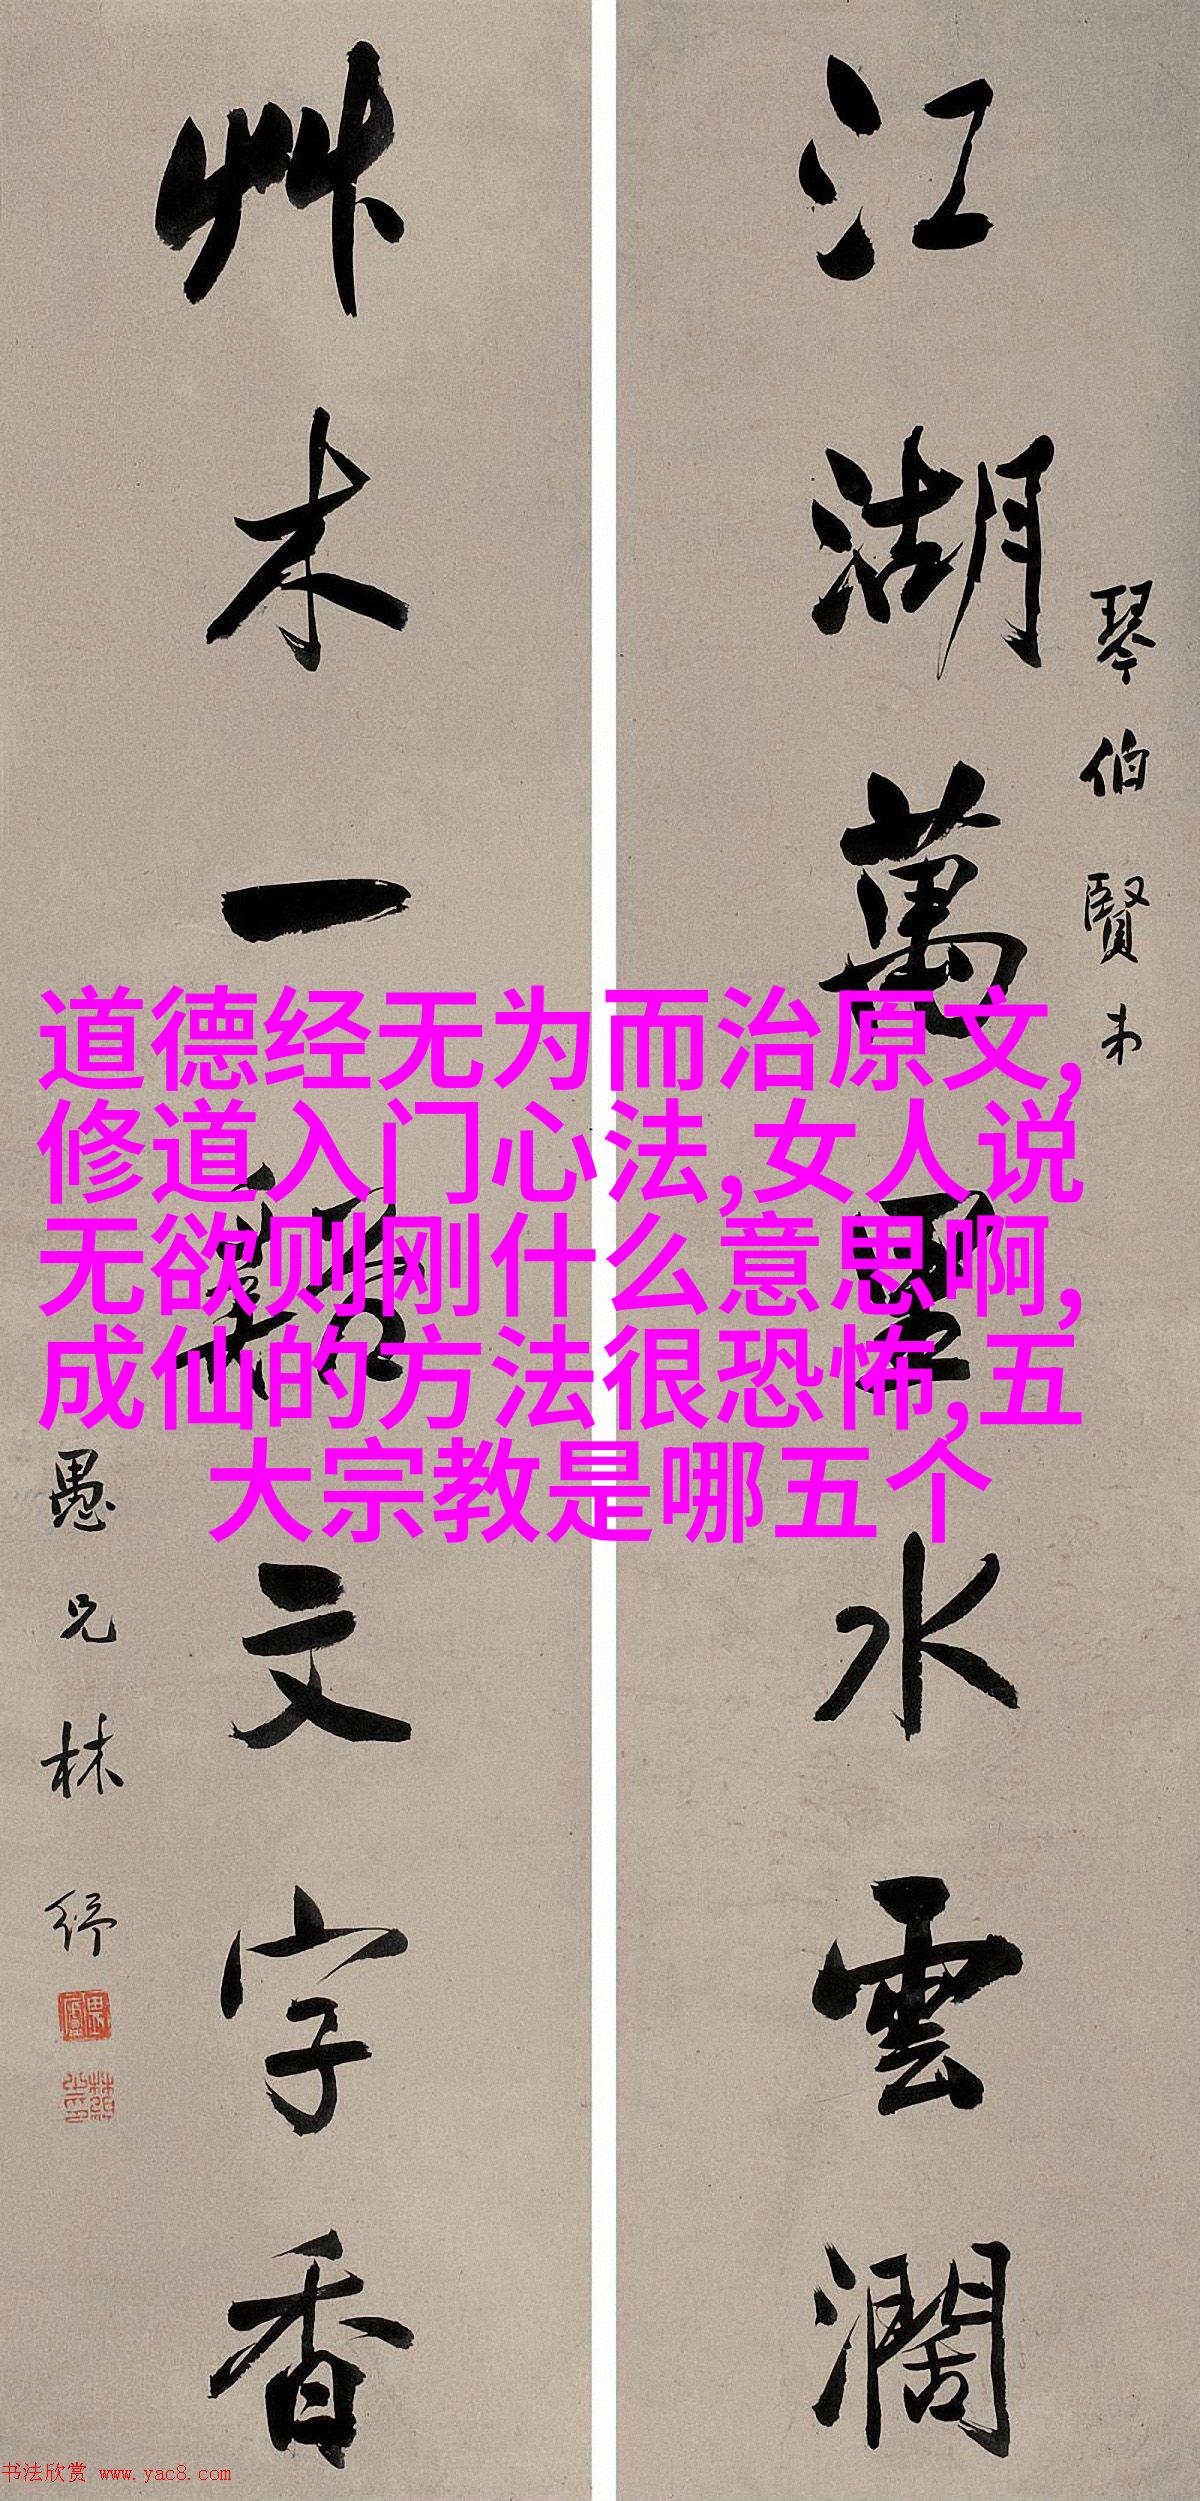 江湖萬里水雲濶
琴伯賢
艸木一
文字香
愚兄林紓
道德经无为而治原文,
修道入门心法,女人说
无欲则刚什么意思啊,
成仙的方法很恐怖,五
大宗教是哪五个
书法欣赏 www.yac8.com